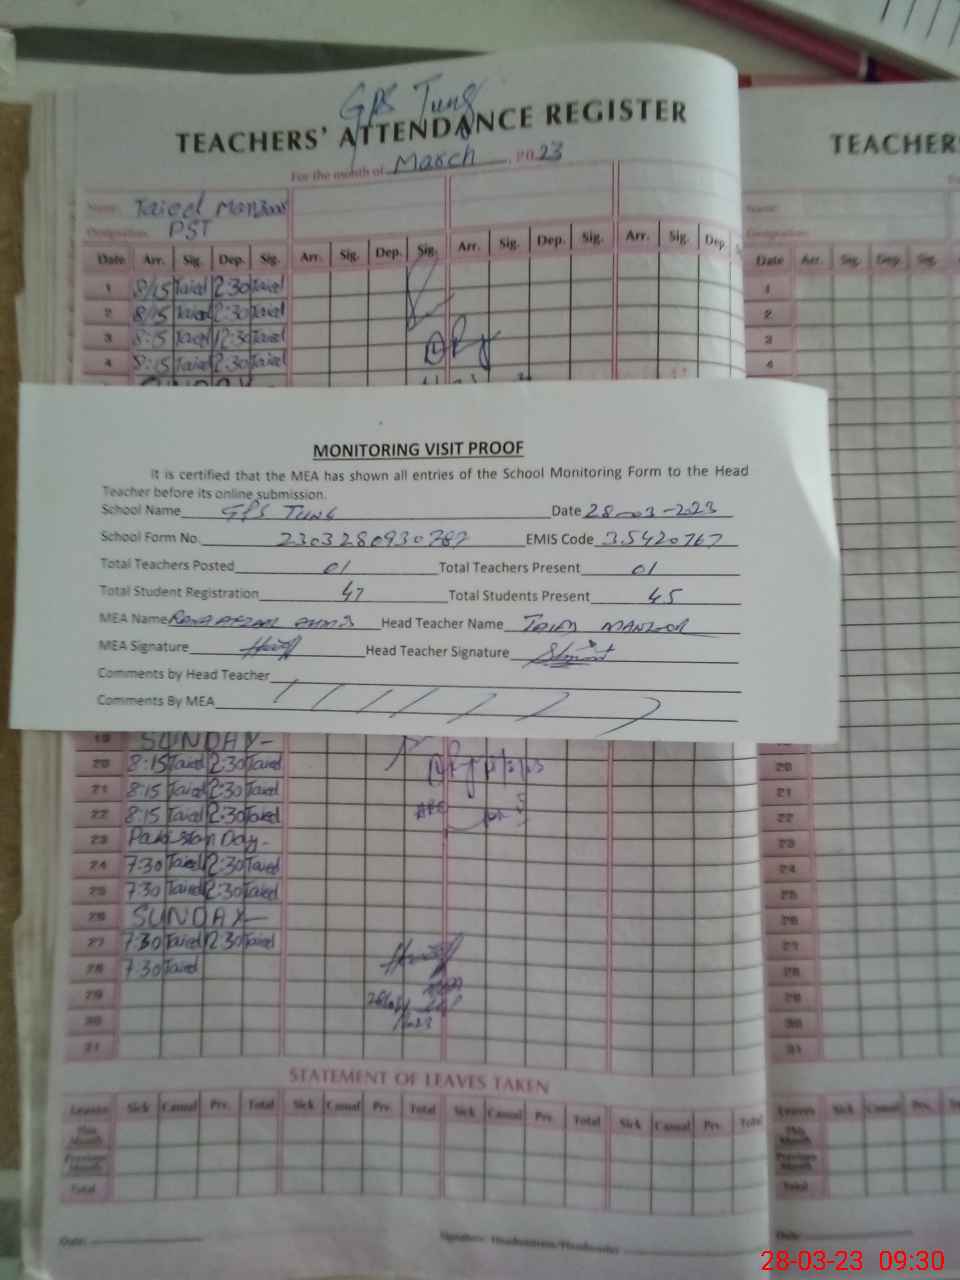 GPS Tung
TEACHERS' ATTENDANCE REGISTER
TEACHER
For the month of March 2023
Name: Taied Manzoor
Name:
Designation: PST
Designation:
Date Arr. Sig. Dep. Sig. Arr. Sig. Dep. Sig. Arr. Sig. Dep. Sig. Arr. Sig. Dep. S
Date Arr. Sig. Dep. Sig.
1 8:15 Taied 2:30 Taied
1
2 8:15 Taied 2:30 Taied
2
3 8:15 Taied 12:30 Taied
3
4 8:15 Taied 2:30 Taied
4
SUNDAY
MONITORING VISIT PROOF
It is certified that the MEA has shown all entries of the School Monitoring Form to the Head
Teacher before its online submission.
School Name GPS TUNG Date 28-03-2023
School Form No. 2303280930787 EMIS Code 35420767
Total Teachers Posted 01 Total Teachers Present 01
Total Student Registration 47 Total Students Present 45
MEA Name Head Teacher Name MANZOOR
MEA Signature Head Teacher Signature
Comments by Head Teacher
Comments By MEA
19 SUNDAY-
20 8:15 Taied 2:30 Taied
20
21 8:15 Taied 2:30 Taied
21
22 8:15 Taied 2:30 Taied
22
23 Pakistan Day-
23
24 7:30 Taied 2:30 Taied
24
25 7:30 Taied 2:30 Taied
25
26 SUNDAY-
26
27 7:30 Taied 12:30 Taied
27
28 7:30 Taied
28
29
29
30
30
31
31
STATEMENT OF LEAVES TAKEN
Leaves Sick Casual Prv. Total Sick Casual Prv. Total Sick Casual Prv. Total Sick Casual Prv. Total
Leaves Sick Casual Prv.
This Month
This Month
Previous Month
Previous Month
Total
Total
Date:
Signature Headmistress/Headmaster
Date:
28-03-23 09:30